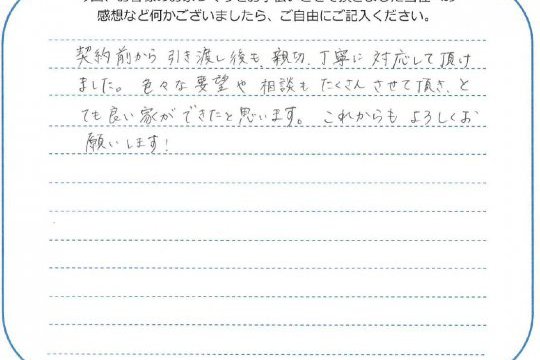 感想など何かございましたら、ご自由にご記入ください。
契約前から引き渡し後も、親切、丁寧に対応して頂け
ました。色々な要望や相談もたくさんさせて頂き、と
ても良い家ができたと思います。これからもよろしくお
願いします!